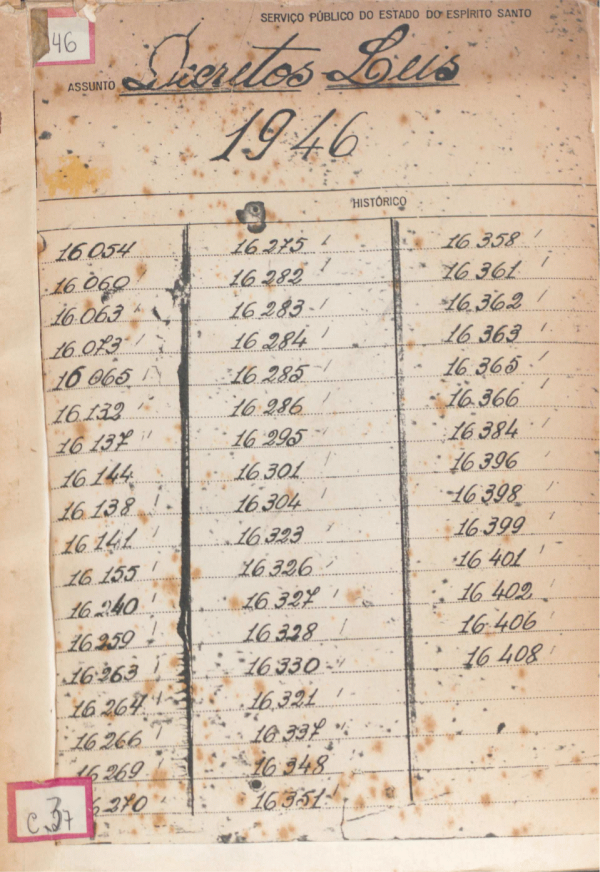 46
SERVIÇO PÚBLICO DO ESTADO DO ESPÍRITO SANTO
ASSUNTO Decretos-Leis
1946
HISTÓRICO
16 054
16 060
16 063
16 073
16 065
16 132
16 137
16 144
16 138
16 141
16 155
16 240
16 259
16 263
16 264
16 266
16 269
16 270
16 275
16 282
16 283
16 284
16 285
16 286
16 295
16 301
16 304
16 323
16 326
16 327
16 328
16 330
16 321
16 337
16 348
16 351
16 358
16 361
16 362
16 363
16 365
16 366
16 384
16 396
16 398
16 399
16 401
16 402
16 406
16 408
C. 37